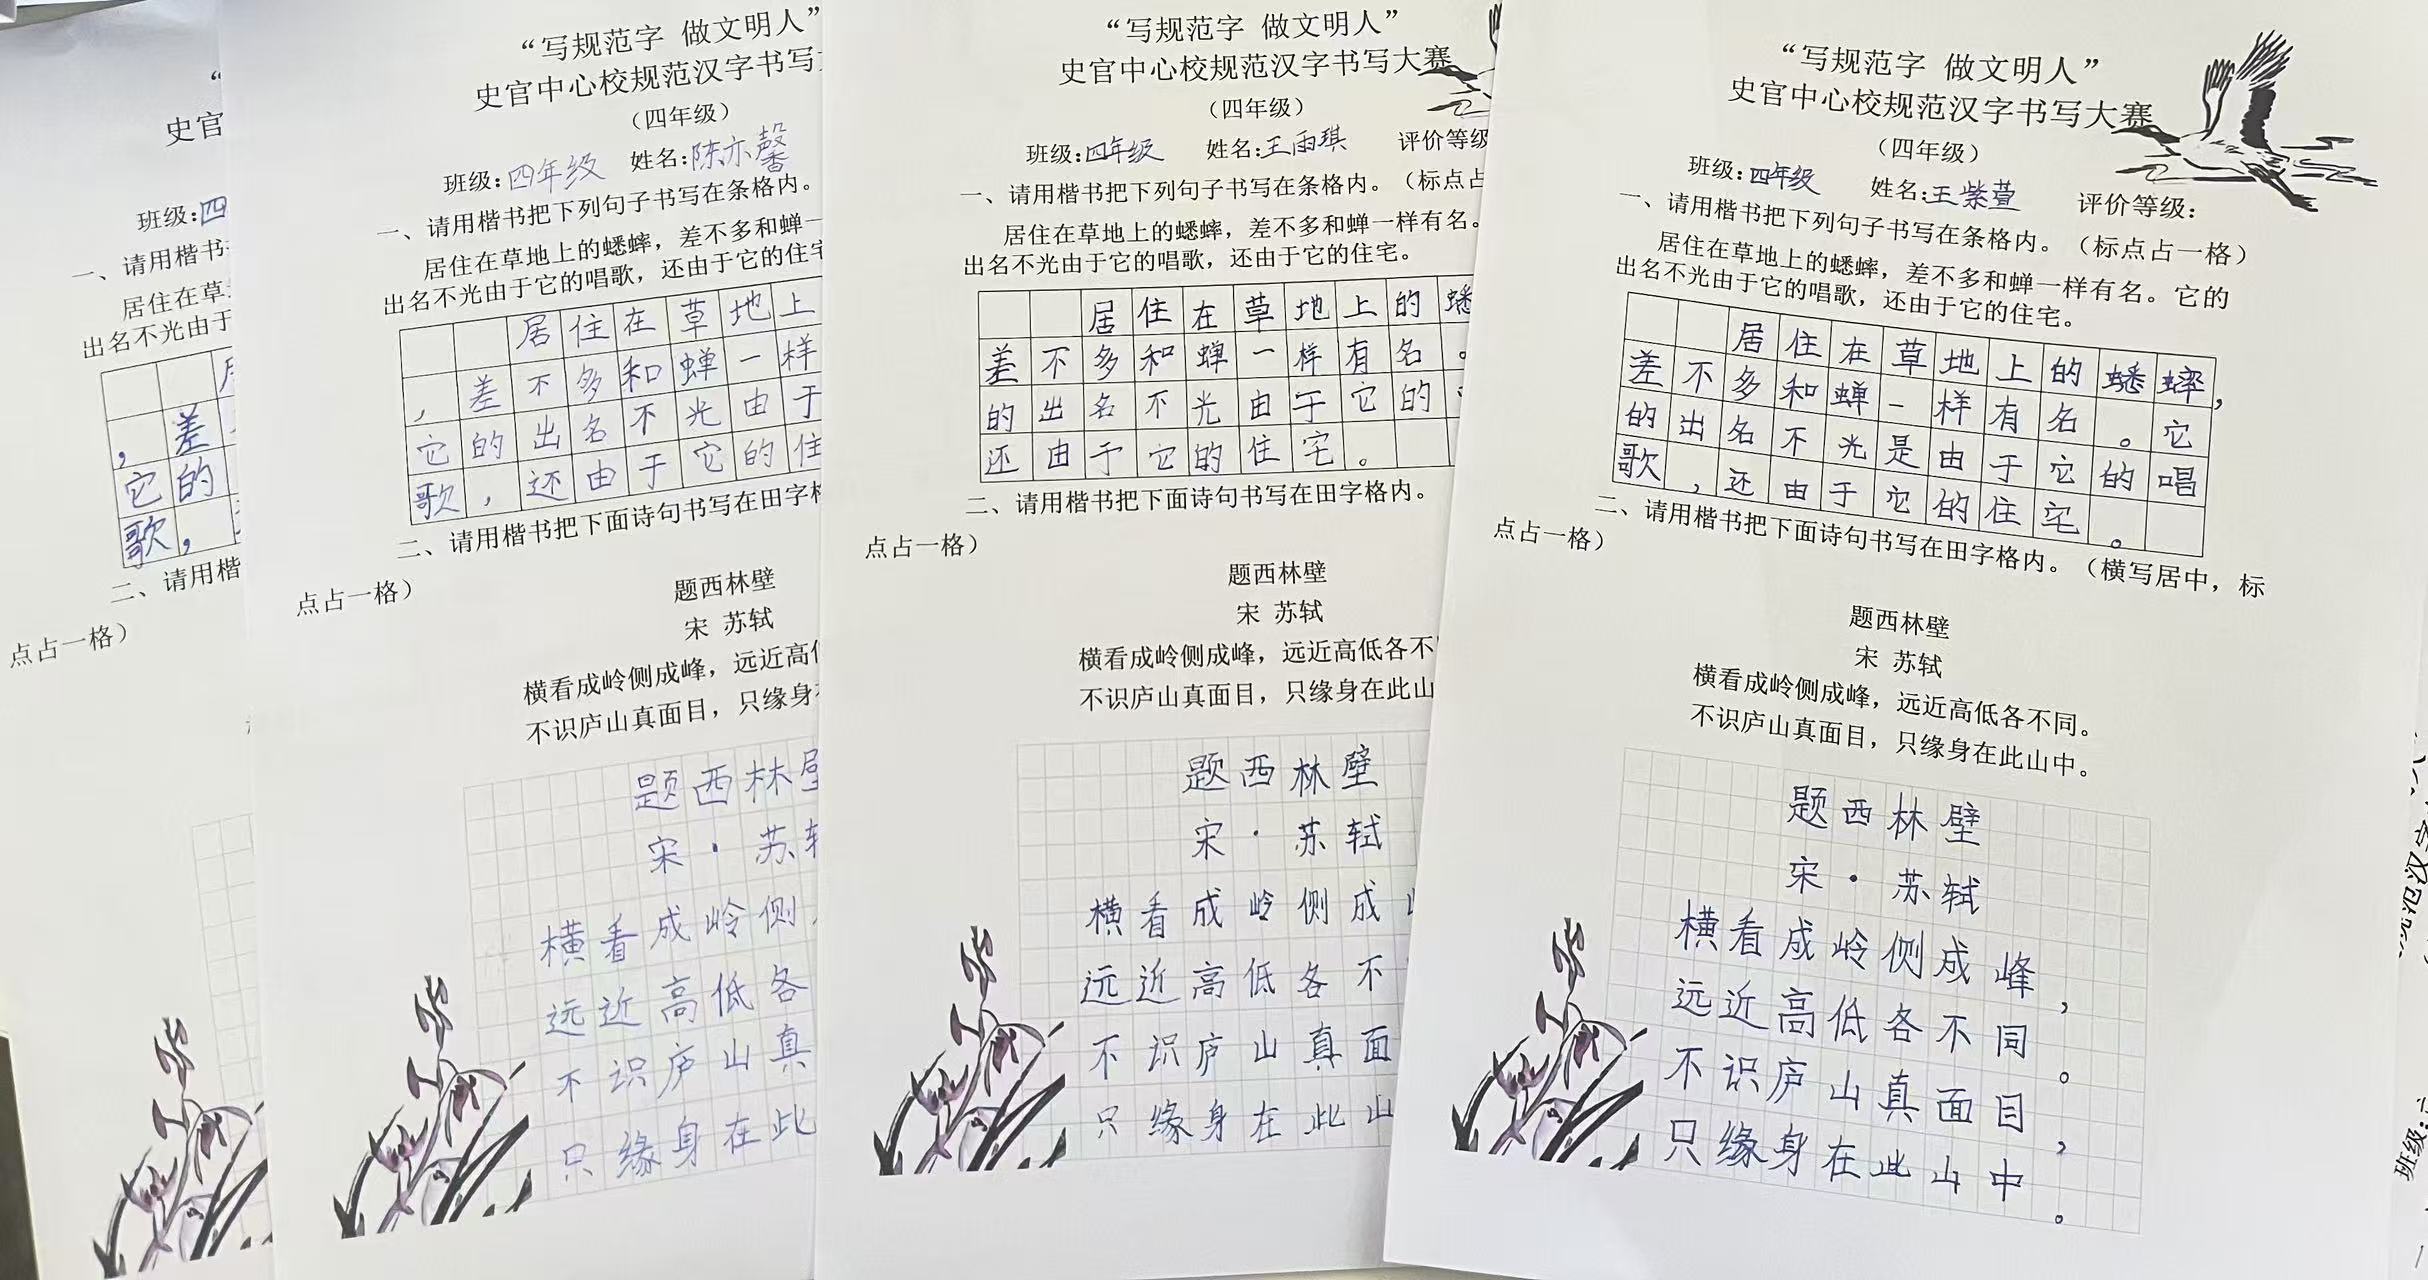 “
史官
班级:四
一、请用楷书
居住在草
出名不光由于
，差
它的
歌，
二、请用楷
点占一格）
“写规范字 做文明人”
史官中心校规范汉字书写
（四年级）
班级:四年级 姓名:陈亦馨
一、请用楷书把下列句子书写在条格内。
居住在草地上的蟋蟀，差不多和蝉一
出名不光由于它的唱歌，还由于它的住宅
居住在草地上
，差不多和蝉一样
它的出名不光由于
歌，还由于它的住
二、请用楷书把下面诗句书写在田字格
点占一格）
题西林壁
宋 苏轼
横看成岭侧成峰，远近高低
不识庐山真面目，只缘身
题西林壁
宋·苏轼
横看成岭侧
远近高低各
不识庐山真
只缘身在此
“写规范字 做文明人”
史官中心校规范汉字书写大赛
（四年级）
班级:四年级 姓名:王雨琪 评价等级
一、请用楷书把下列句子书写在条格内。（标点占
居住在草地上的蟋蟀，差不多和蝉一样有名。
出名不光由于它的唱歌，还由于它的住宅。
居住在草地上的蟋
差不多和蝉一样有名。
的出名不光由于它的
还由于它的住宅。
二、请用楷书把下面诗句书写在田字格内。
点占一格）
题西林壁
宋 苏轼
横看成岭侧成峰，远近高低各不
不识庐山真面目，只缘身在此山
题西林壁
宋·苏轼
横看成岭侧成
远近高低各不
不识庐山真面
只缘身在此山
“写规范字 做文明人”
史官中心校规范汉字书写大赛
（四年级）
班级:四年级 姓名:王紫萱 评价等级:
一、请用楷书把下列句子书写在条格内。（标点占一格）
居住在草地上的蟋蟀，差不多和蝉一样有名。它的
出名不光由于它的唱歌，还由于它的住宅。
居住在草地上的蟋蟀，
差不多和蝉一样有名。它
的出名不光是由于它的唱
歌，还由于它的住宅。
二、请用楷书把下面诗句书写在田字格内。（横写居中，标
点占一格）
题西林壁
宋 苏轼
横看成岭侧成峰，远近高低各不同。
不识庐山真面目，只缘身在此山中。
题西林壁
宋·苏轼
横看成岭侧成峰，
远近高低各不同。
不识庐山真面目，
只缘身在此山中。
班级: